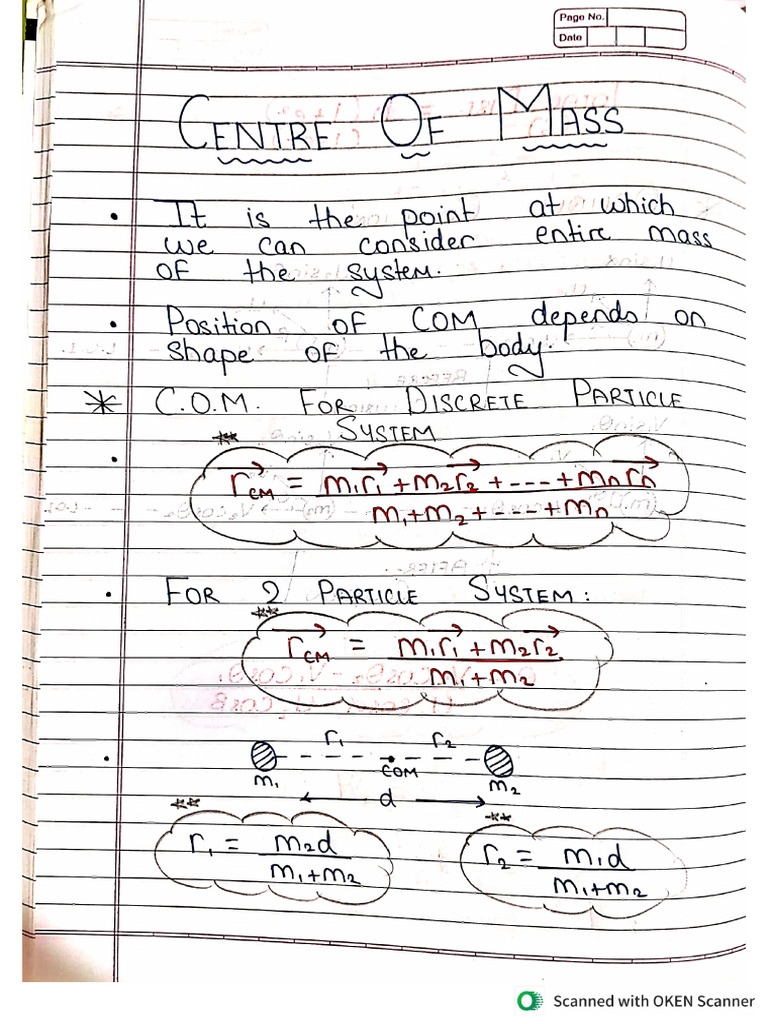 Page No.
Date
CENTRE OF MASS
• It is the point at which
we can consider entire mass
of the system.
• Position of COM depends on
shape of the body.
* C.O.M. FOR DISCRETE PARTICLE
SYSTEM
**
• r⃗CM = m₁r⃗₁ + m₂r⃗₂ + --- + mₙr⃗ₙ
m₁+m₂+---+mₙ
• FOR 2 PARTICLE SYSTEM:
**
r⃗CM = m₁r⃗₁ + m₂r⃗₂
m₁+m₂
• r₁ r₂
COM
m₁ m₂
d
** **
r₁ = m₂d r₂ = m₁d
m₁+m₂ m₁+m₂
Scanned with OKEN Scanner